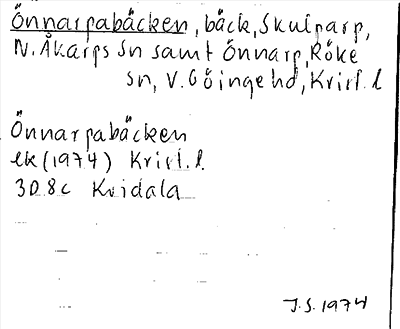 Önnarpabäcken, bäck, Skulparp,
N. Åkarps Sn samt Önnarp, Röke
sn, V. Göingehd, Krist. l
Önnarpabäcken
ek (1974) Krist. l.
3D 8c Kvidala
J.S. 1974